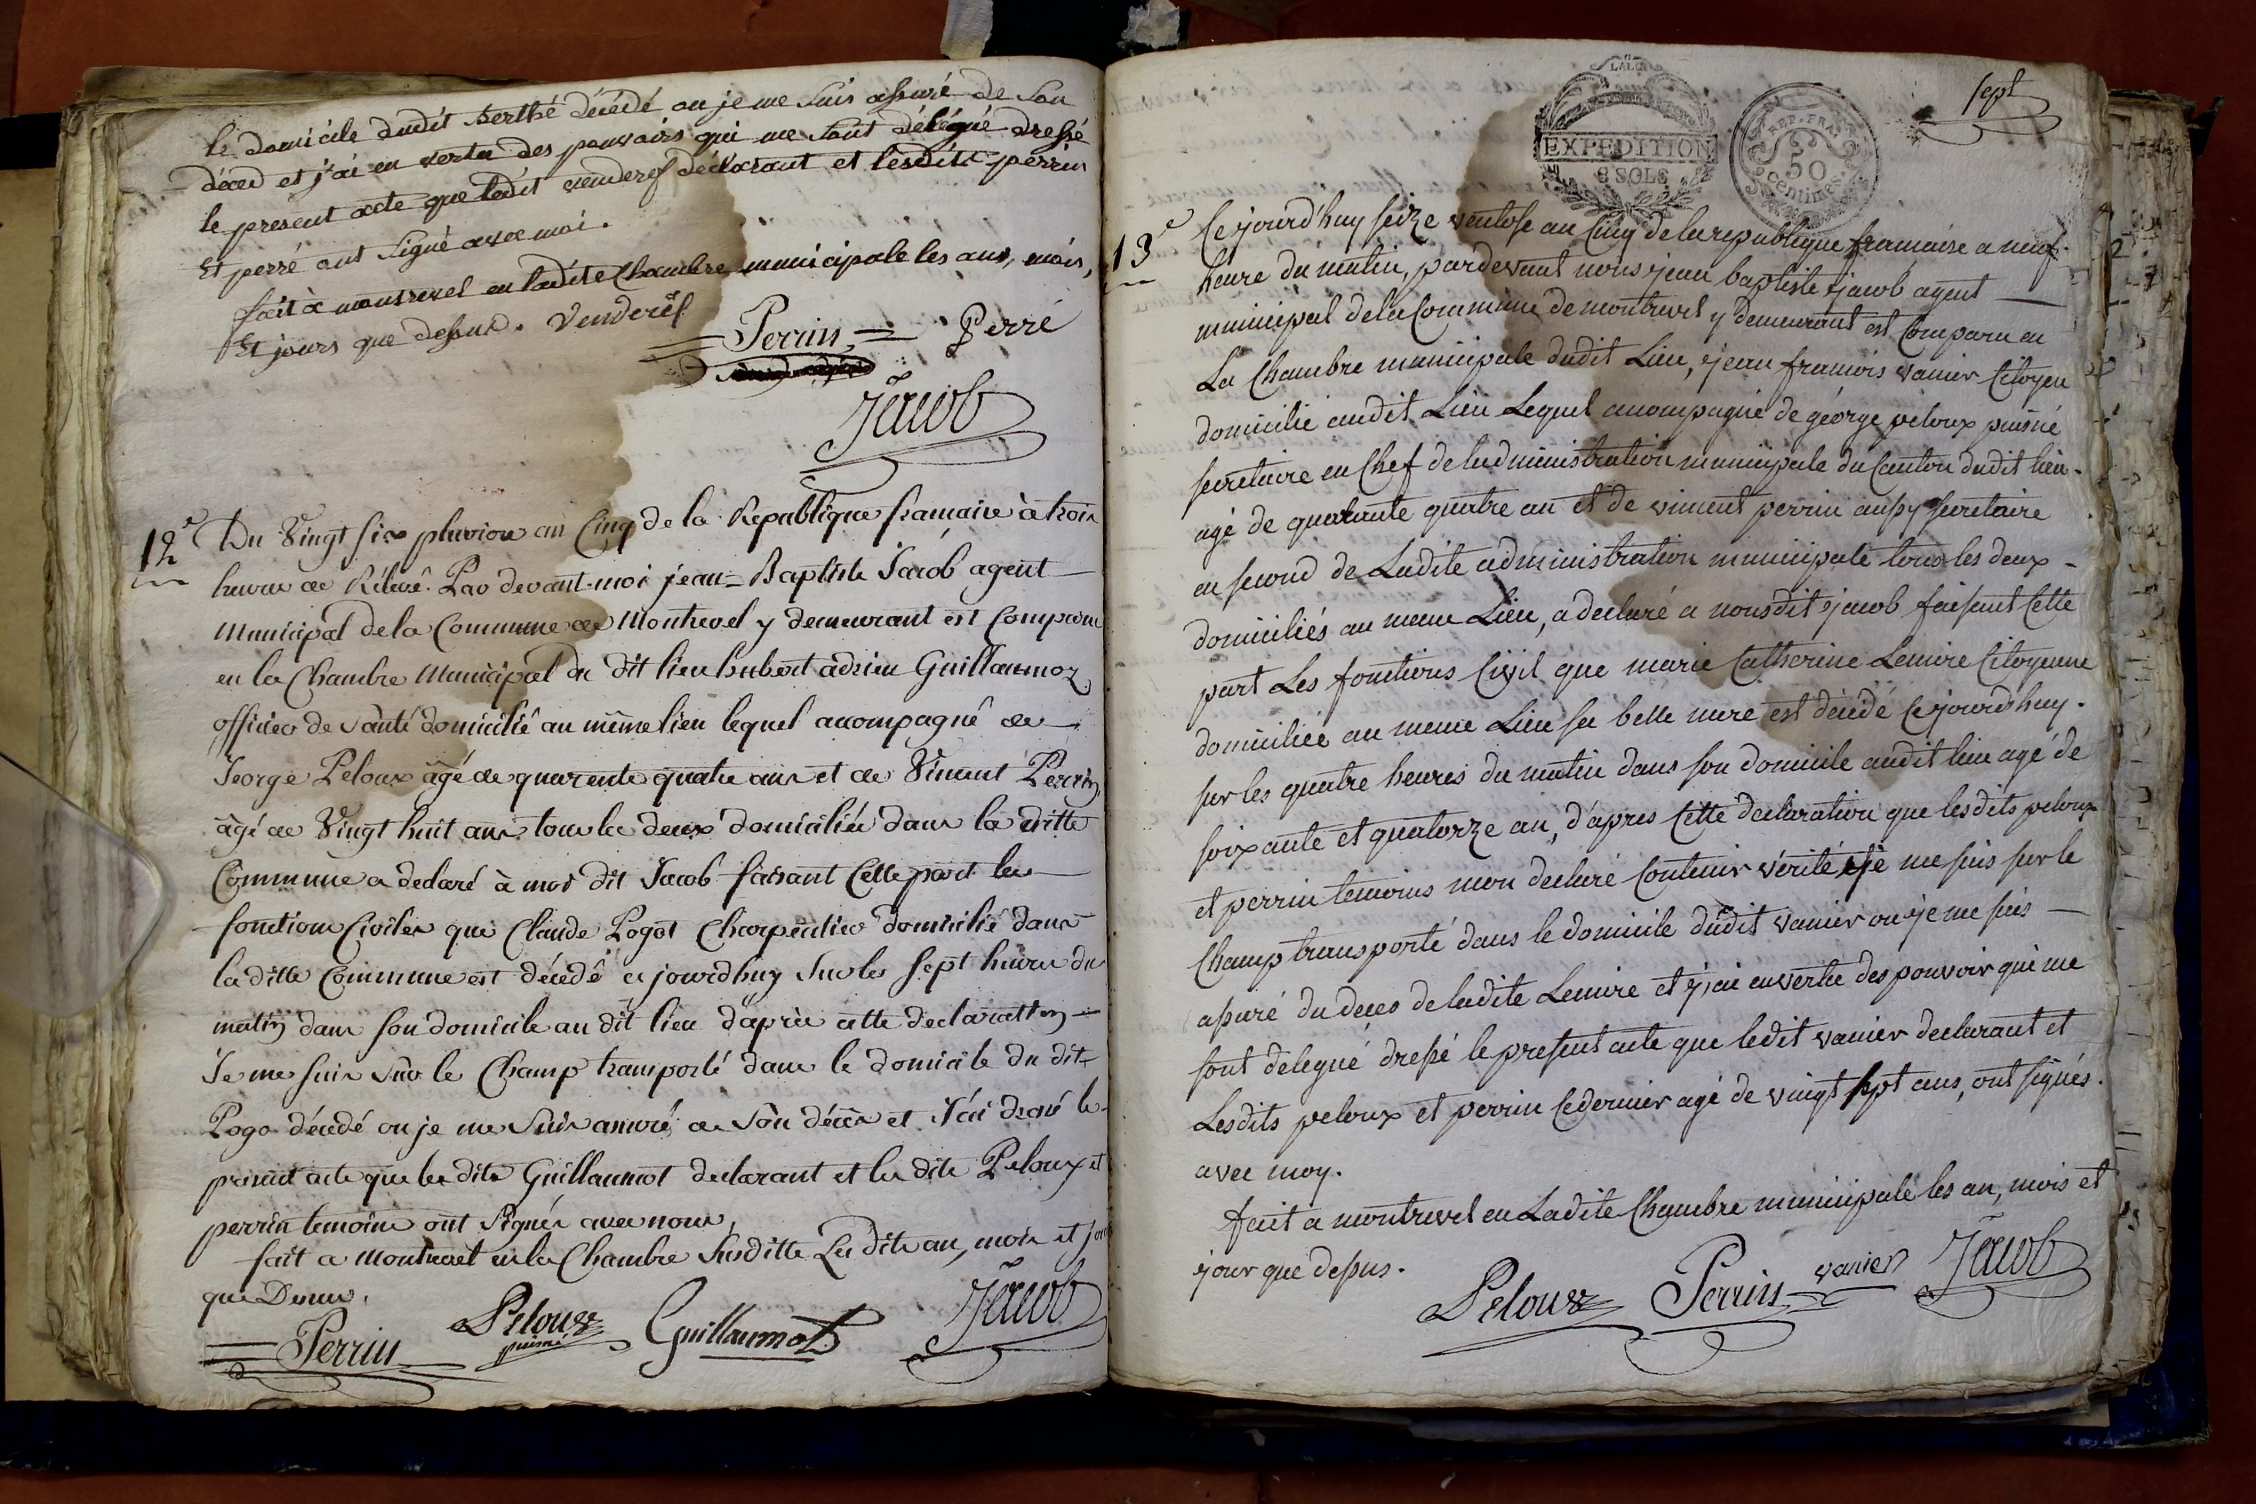 le domicile dudit Berthé décédé ou je me suis assuré de son
déces et j'ai en vertu des pouvoirs qui me sont délégué dressé
le present acte que ledit venderes déclarant et lesdits perrin
Et perré ont signé avec moi.
fait à montrevel en ladite Chambre municipale les ans, mois,
Et jours que dessus. Venderes
Perrin Perré
Jacob
12e Du Vingt six pluviose an Cinq de la Republique francaise à trois
heures de Rélevé. Par devant moi jean-Baptiste Jacob agent
Municipal de la Commune de Montrevel y demeurant est Comparu
en la Chambre Municipal du dit lieu hubert adrien Guillaumoz
officier de santé domicilié au même lieu lequel accompagné de
George Peloux âgé de quarente quatre ans et de Vincent Perrin
âgé de Vingt huit ans tous les deux domiciliés dans la ditte
Commune a declaré à moi dit Jacob faisant Cette part les
fonctions Civiles que Claude Pogot Charpentier domicilié dans
la ditte Commune est décédé ce jourd'huy sur les sept heures du
matin dans son domicile au dit lieu d'après cette declaration
Je me suis sur le Champ transporté dans le domicile du dit
Pogo décédé ou je me suis assuré de son décès et J'ai dressé le
present acte que les dits Guillaumot declarant et les dits Peloux et
perrin temoins ont signés avec nous,
fait a Montrevel en la Chambre susditte Les dits an, mois et jour
que Dessus.
Perrin Peloux puisné Guillaumot Jacob
sept
EXPEDITION
8 SOLS
REP. FRA.
50
centimes
13e Cejourd'huy seize ventose an Cinq de la republique francaise a neuf
heure du matin, pardevant nous jean baptiste jacob agent
municipal de la Commune de montrevel y demeurant est Comparu en
La Chambre municipale dudit Lieu, jean francois vanier Citoyen
domicilié audit Lieu Lequel accompagné de géorge peloux puisné
secretaire en Chef de ladministration municipale du Canton dudit lieu
agé de quarante quatre an et de vincent perrin aussy secretaire
en second de Ladite administration municipale tous les deux
domiciliés au meme Lieu, a declaré a nousdit jacob faisant Cette
part Les fonctions Civil que marie Catherine Lemire Citoyenne
domiciliée au meme Lieu sa belle mere est décédé Cejourd'huy
sur les quatre heures du matin dans son domicile audit lieu agé de
soixante et quatorze an, d'apres Cette declaration que lesdits peloux
et perrin temoins mon declaré Contenir vérité, je me suis sur le
Champ transporté dans le domicile dudit vanier ou je me suis
assuré du deces de ladite Lemire et j'ai en vertu des pouvoir qui me
sont délegué dressé le present acte que ledit vanier declarant et
Lesdits peloux et perrin Cedernier agé de vingt sept ans, ont signés
avec moy.
fait a montrevel en Ladite Chambre municipale les an, mois et
jour que dessus.
Peloux Perrin vanier Jacob